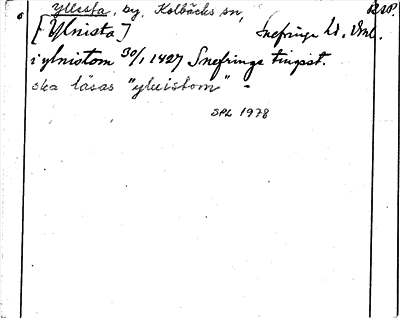 Yllesta, by, Kolbäcks sn,
[Ylnista] Snefringe hd. Vml.
i ylnistom 30/1 1427 Snefringe tingst.
ska läsas "yluistom" -
SPL 1978